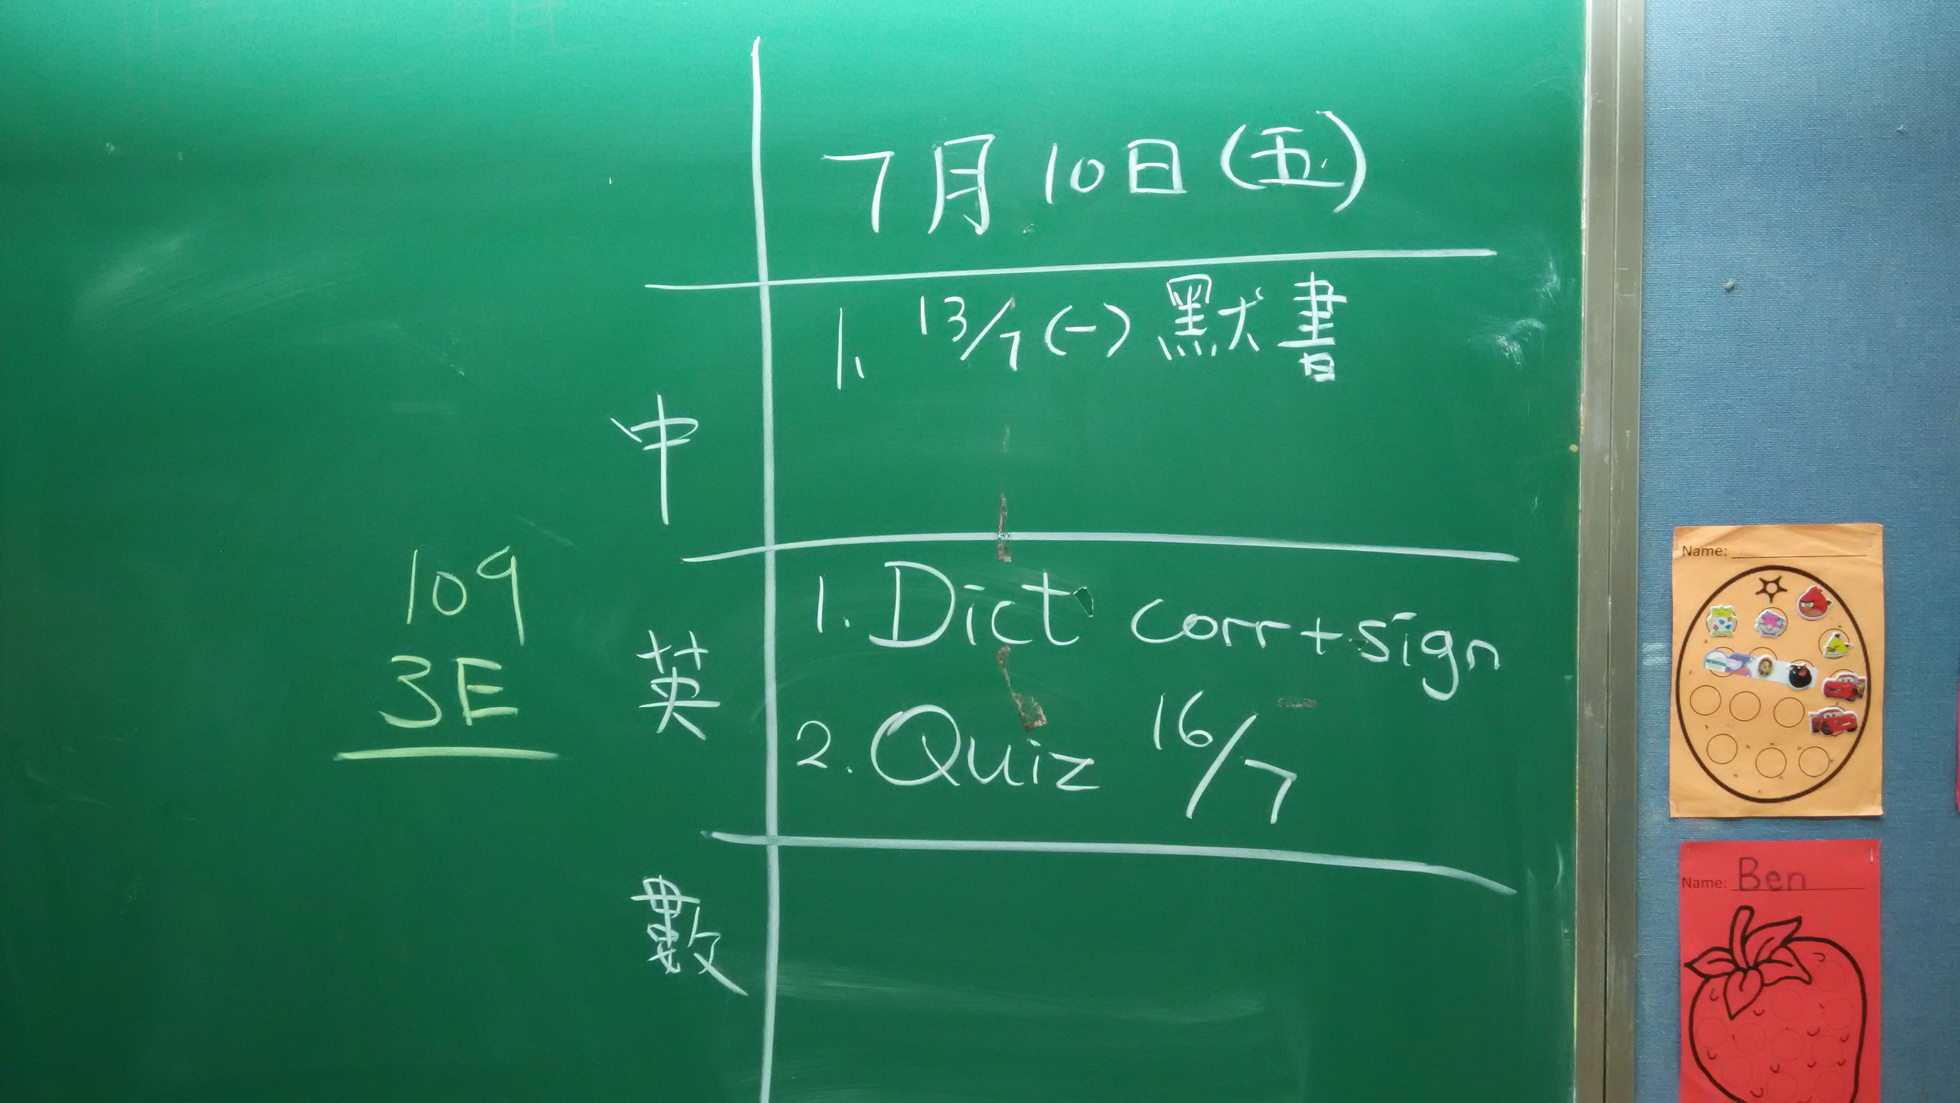 7月10日(五)
中
1. 13/7 (一) 默書
109
3E
英
1. Dict corr + sign
2. Quiz 16/7
數
Name:
Name: Ben